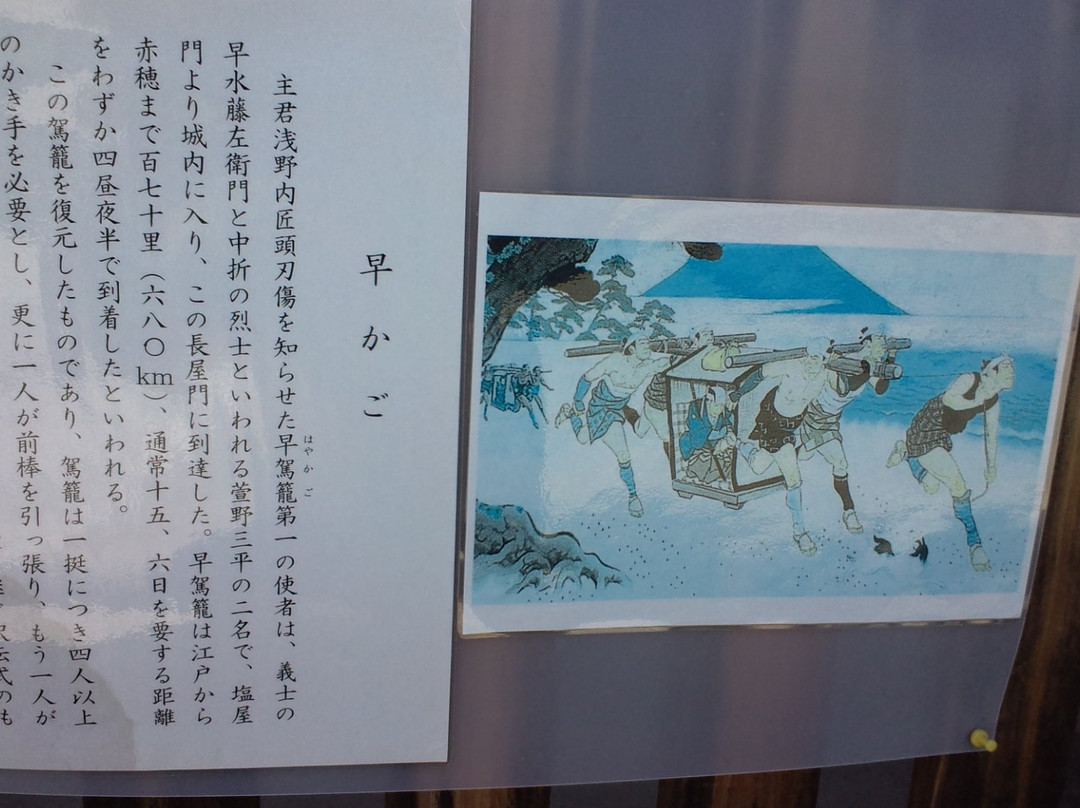 早かご
主君浅野内匠頭刃傷を知らせた早駕籠第一の使者は、義士の
はやかご
早水藤左衛門と中折の烈士といわれる萱野三平の二名で、塩屋
門より城内に入り、この長屋門に到達した。早駕籠は江戸から
赤穂まで百七十里(六八〇km)、通常十五、六日を要する距離
をわずか四昼夜半で到着したといわれる。
この駕籠を復元したものであり、駕籠は一挺につき四人以上
のかき手を必要とし、更に一人が前棒を引っ張り、もう一人が